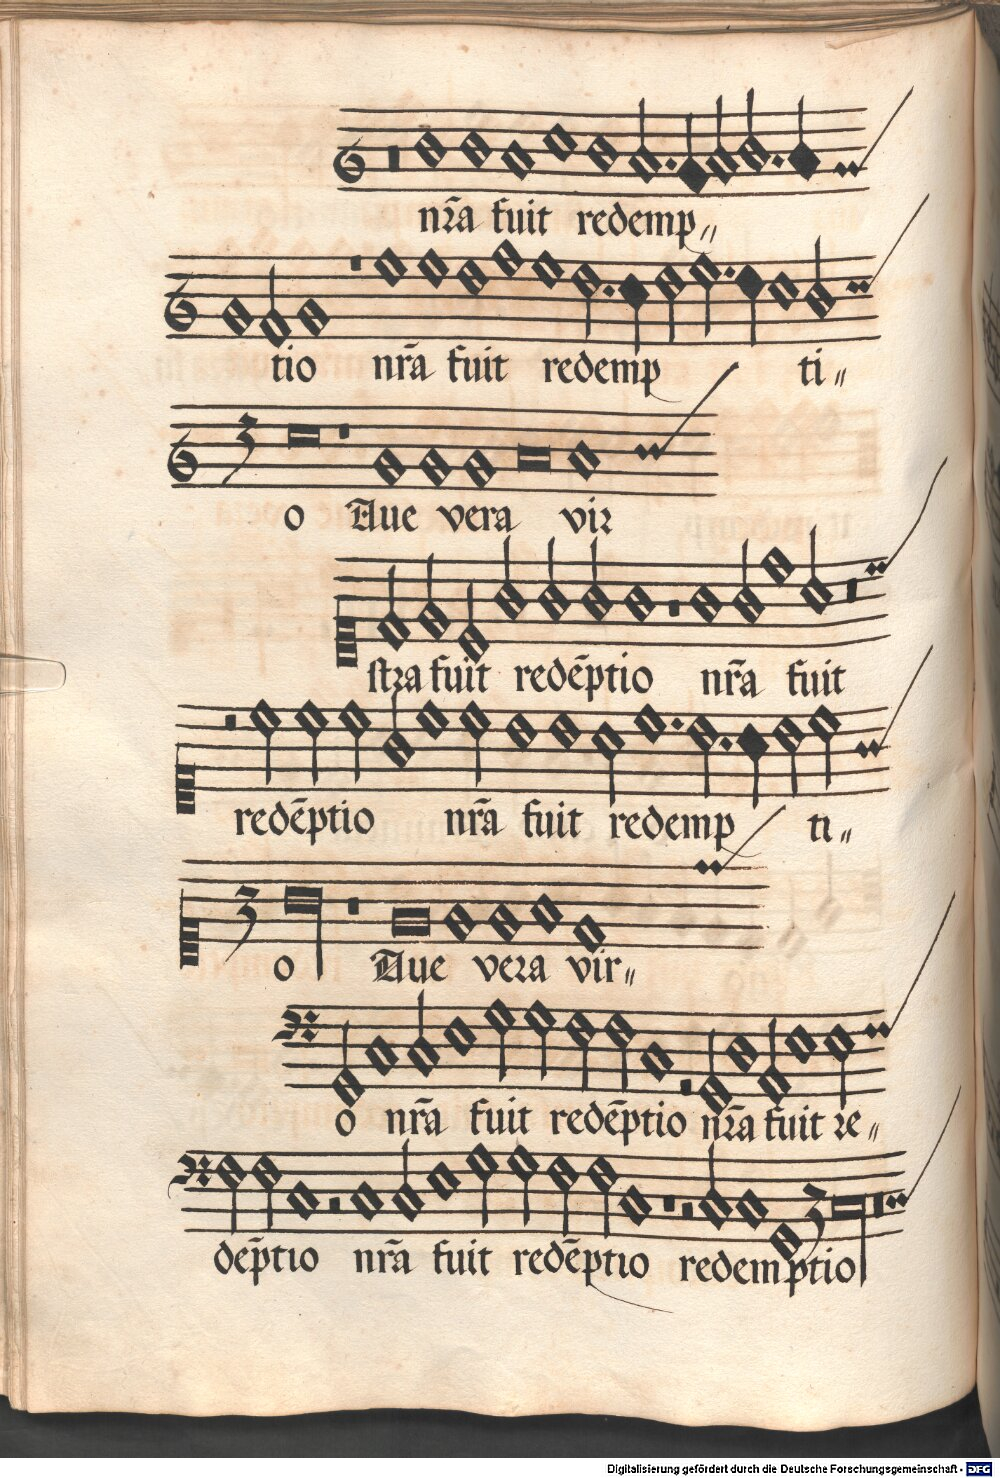 nr̃a fuit redemp〃
tio nr̃a fuit redemp ti〃
o Aue vera vir
stra fuit redẽptio nr̃a fuit
redẽptio nr̃a fuit redemp ti〃
o Aue vera vir〃
o nr̃a fuit redẽptio nr̃a fuit re〃
dẽptio nr̃a fuit redẽptio redemptio
Digitalisierung gefördert durch die Deutsche Forschungsgemeinschaft - DFG